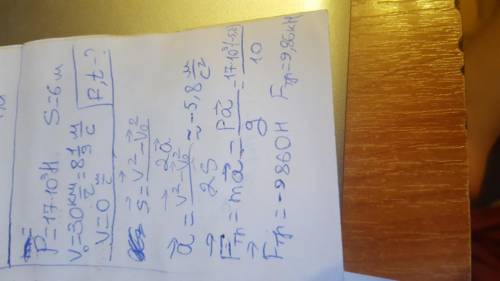 P=17·10³H S=6 м
V₀=30 км/ч=8 1/3 м/с
V=0 м/с F,t-?
S⃗=(V⃗²-V⃗₀²)/2a⃗
a⃗=(V⃗²-V⃗₀²)/2S ≈-5,8 м/с²
F⃗тр=ma⃗=Pa⃗/g=17·10³(-5,8)/10
F⃗тр=-9860H Fтр=9,86кH